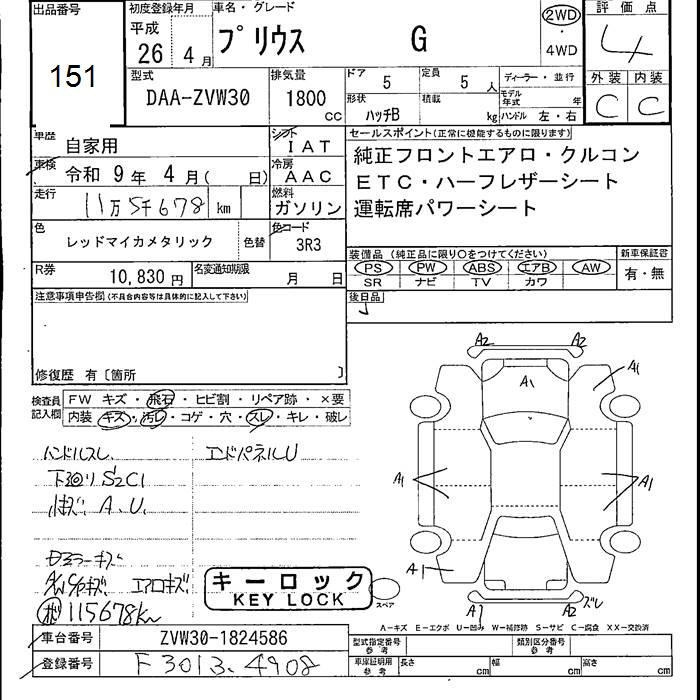 出品番号
151
初度登録年月
平成
26 年 4 月
車名・グレード
プリウス G
2WD
・
4WD
評価点
4
外装 内装
C C
型式
DAA-ZVW30
排気量
1800
cc
ドア 5
定員 5 人
形状 ハッチB
積載 kg
ディーラー・並行
モデル年式 年
ハンドル 左・右
車歴 自家用
シフト IAT
車検 令和 9 年 4 月( 日)
冷房 AAC
走行 11万5千678 km
燃料 ガソリン
色 レッドマイカメタリック
色替
色コード 3R3
R券 10,830 円
名変通知期限 月 日
セールスポイント(正常に機能するものに限ります)
純正フロントエアロ・クルコン
ETC・ハーフレザーシート
運転席パワーシート
装備品(純正品に限り○をつけてください)
PS PW ABS エアB AW
SR ナビ TV カワ
新車保証書
有・無
後日品
注意事項申告欄(不具合内容等は具体的に記入して下さい)
修復歴 有〔箇所 〕
検査員
記入欄
FW キズ・飛石・ヒビ割・リペア跡・×要
内装 キズ・汚レ・コゲ・穴・スレ・キレ・破レ
ハンドルスレ
エンドパネルU
下回りS2C1
小キズ A.U.
エアロキズ
115678km
キーロック
KEY LOCK
A2 A2
A1
A1
A1
A1
A1
A1 A2 ズレ
スペア
A-キズ E-エクボ U-凹み W-補修跡 S-サビ C-腐食 XX-交換済
車台番号 ZVW30-1824586
登録番号 F3013-4908
型式指定番号
参考
類別区分番号
参考
車庫証明用
参考
長さ cm
幅 cm
高さ cm